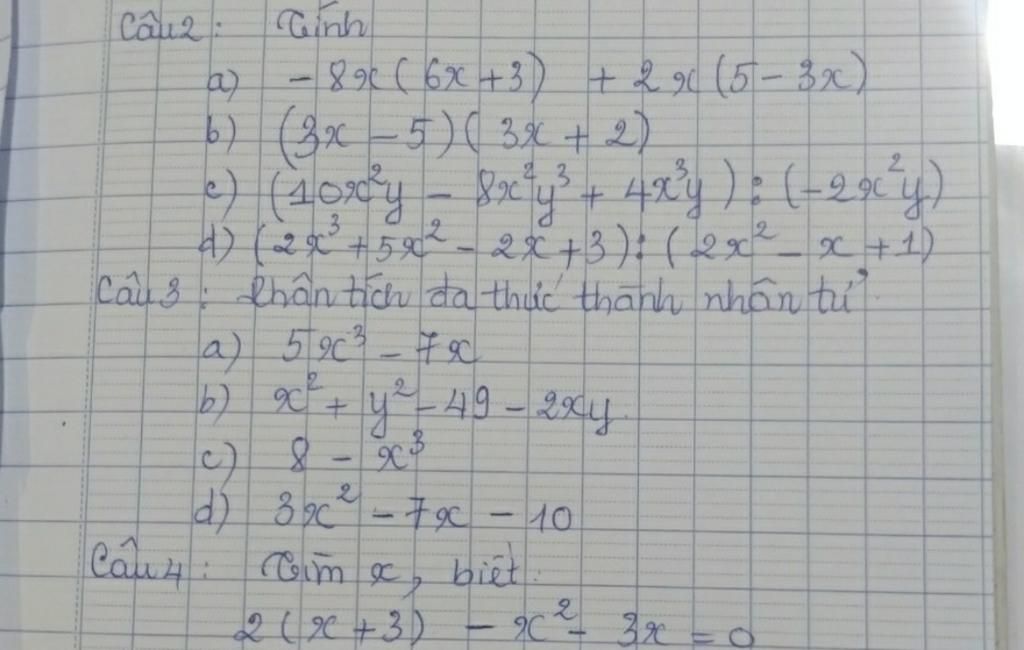 Câu 2 : Tính
a) - 8x ( 6x + 3 ) + 2x ( 5 - 3x )
b) ( 3x - 5 ) ( 3x + 2 )
c) ( 10x²y - 8x²y³ + 4x³y ) : ( -2x²y )
d) ( 2x³ + 5x² - 2x + 3 ) : ( 2x² - x + 1 )
Câu 3 : Phân tích đa thức thành nhân tử
a) 5x³ - 7x
b) x² + y² - 49 - 2xy
c) 8 - x³
d) 3x² - 7x - 10
Câu 4 : Tìm x, biết :
2 ( x + 3 ) - x² - 3x = 0